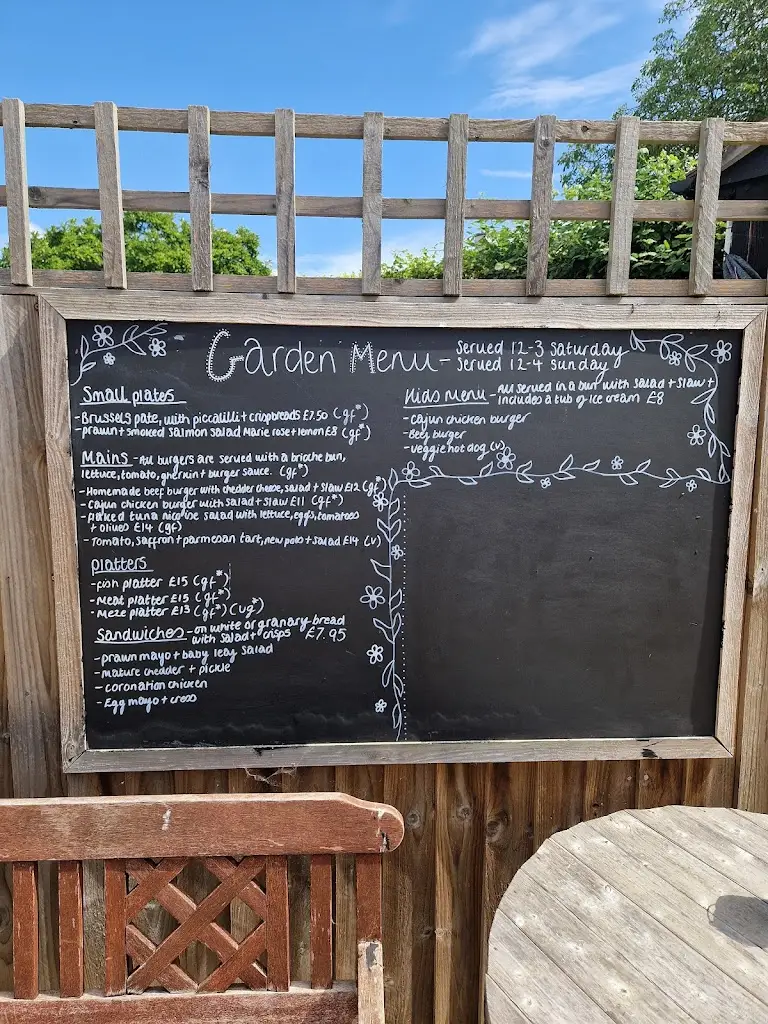 Garden Menu - Served 12-3 Saturday
Served 12-4 Sunday
Small plates
- Brussels pate, with piccalilli + crispbreads £7.50 (gf*)
- prawn + smoked salmon salad Marie rose + lemon £8 (gf*)
Mains - All burgers are served with a brioche bun,
lettuce, tomato, gherkin + burger sauce. (gf*)
- Homemade beef burger with chedder cheese, salad + slaw £12 (gf*)
- Cajun chicken burger with salad + slaw £11 (gf*)
- flaked tuna nicoise salad with lettuce, eggs, tomatoes
+ olives £14 (gf)
- Tomato, saffron + parmesan tart, new pots + salad £14 (v)
platters
- fish platter £15 (gf*)
- Meat platter £15 (gf*)
- Meze platter £13 (gf*) (vg*)
Sandwiches - on white or granary bread
with salad + crisps £7.95
- prawn mayo + baby leaf salad
- mature chedder + pickle
- coronation chicken
- Egg mayo + cress
Kids menu - All served in a bun with salad + slaw +
- includes a tub of ice cream £8
- Cajun chicken burger
- Beef burger
- veggie hot dog (v)